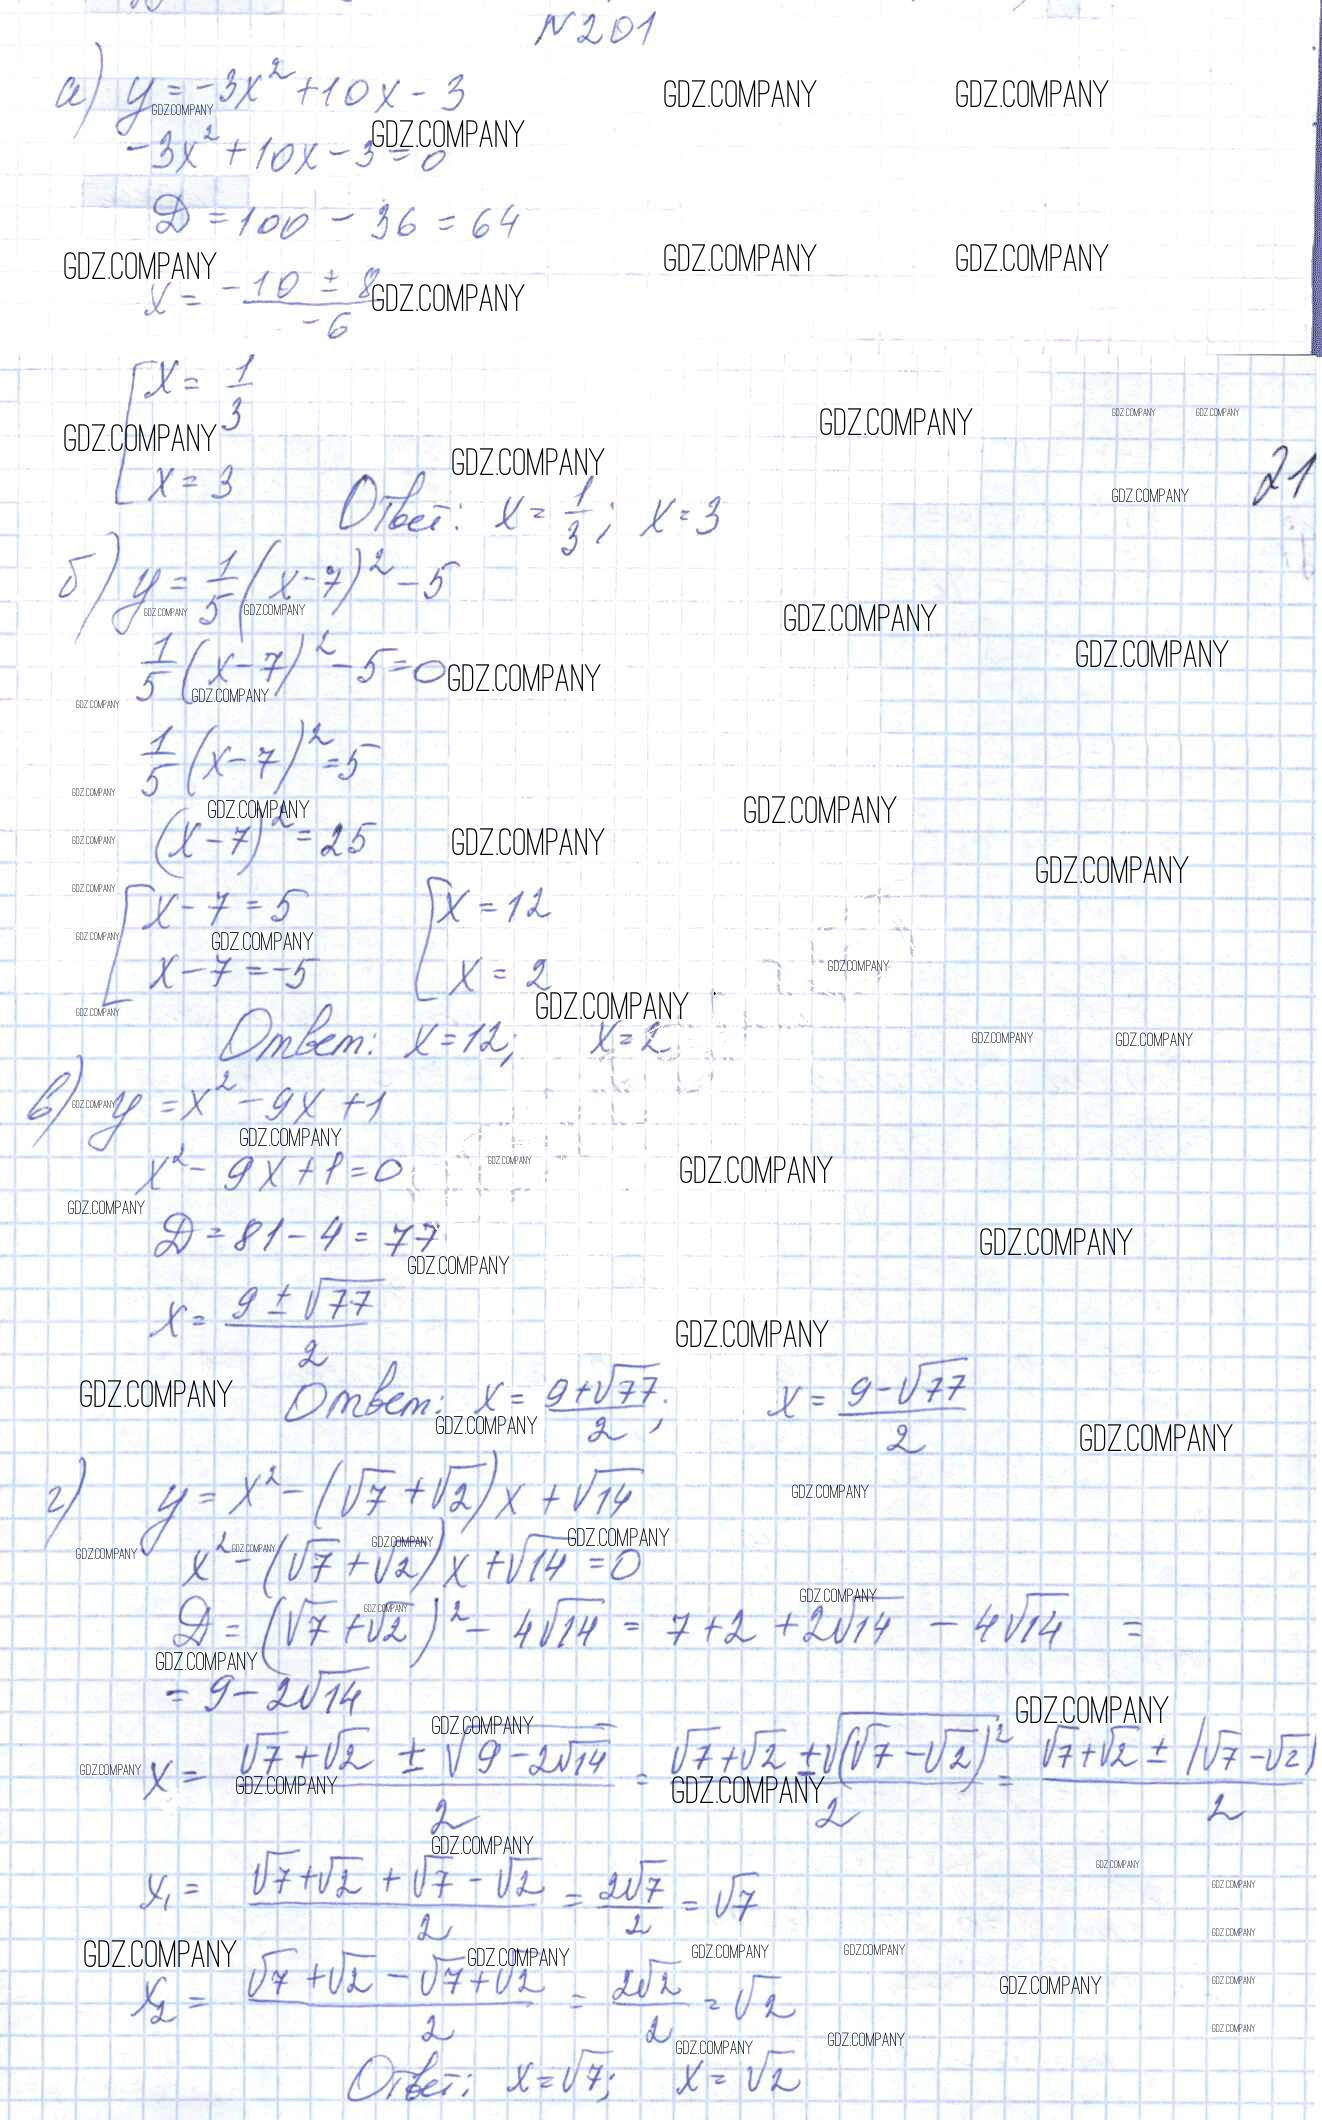 N201
а) y = -3x² + 10x - 3
-3x² + 10x - 3 = 0
D = 100 - 36 = 64
x = (-10 ± 8)/(-6)
[ x = 1/3
x = 3
Ответ: x = 1/3; x = 3
21
б) y = 1/5 (x-7)² - 5
1/5 (x-7)² - 5 = 0
1/5 (x-7)² = 5
(x-7)² = 25
[ x - 7 = 5 [ x = 12
x - 7 = -5 x = 2
Ответ: x = 12; x = 2
в) y = x² - 9x + 1
x² - 9x + 1 = 0
D = 81 - 4 = 77
x = (9 ± √77)/2
Ответ: x = (9 + √77)/2; x = (9 - √77)/2
г) y = x² - (√7 + √2)x + √14
x² - (√7 + √2)x + √14 = 0
D = (√7 + √2)² - 4√14 = 7 + 2 + 2√14 - 4√14 =
= 9 - 2√14
x = (√7 + √2 ± √(9 - 2√14))/2 = (√7 + √2 ± √((√7 - √2)²))/2 = (√7 + √2 ± |√7 - √2|)/2
x₁ = (√7 + √2 + √7 - √2)/2 = 2√7/2 = √7
x₂ = (√7 + √2 - √7 + √2)/2 = 2√2/2 = √2
Ответ: x = √7; x = √2
GDZ.COMPANY